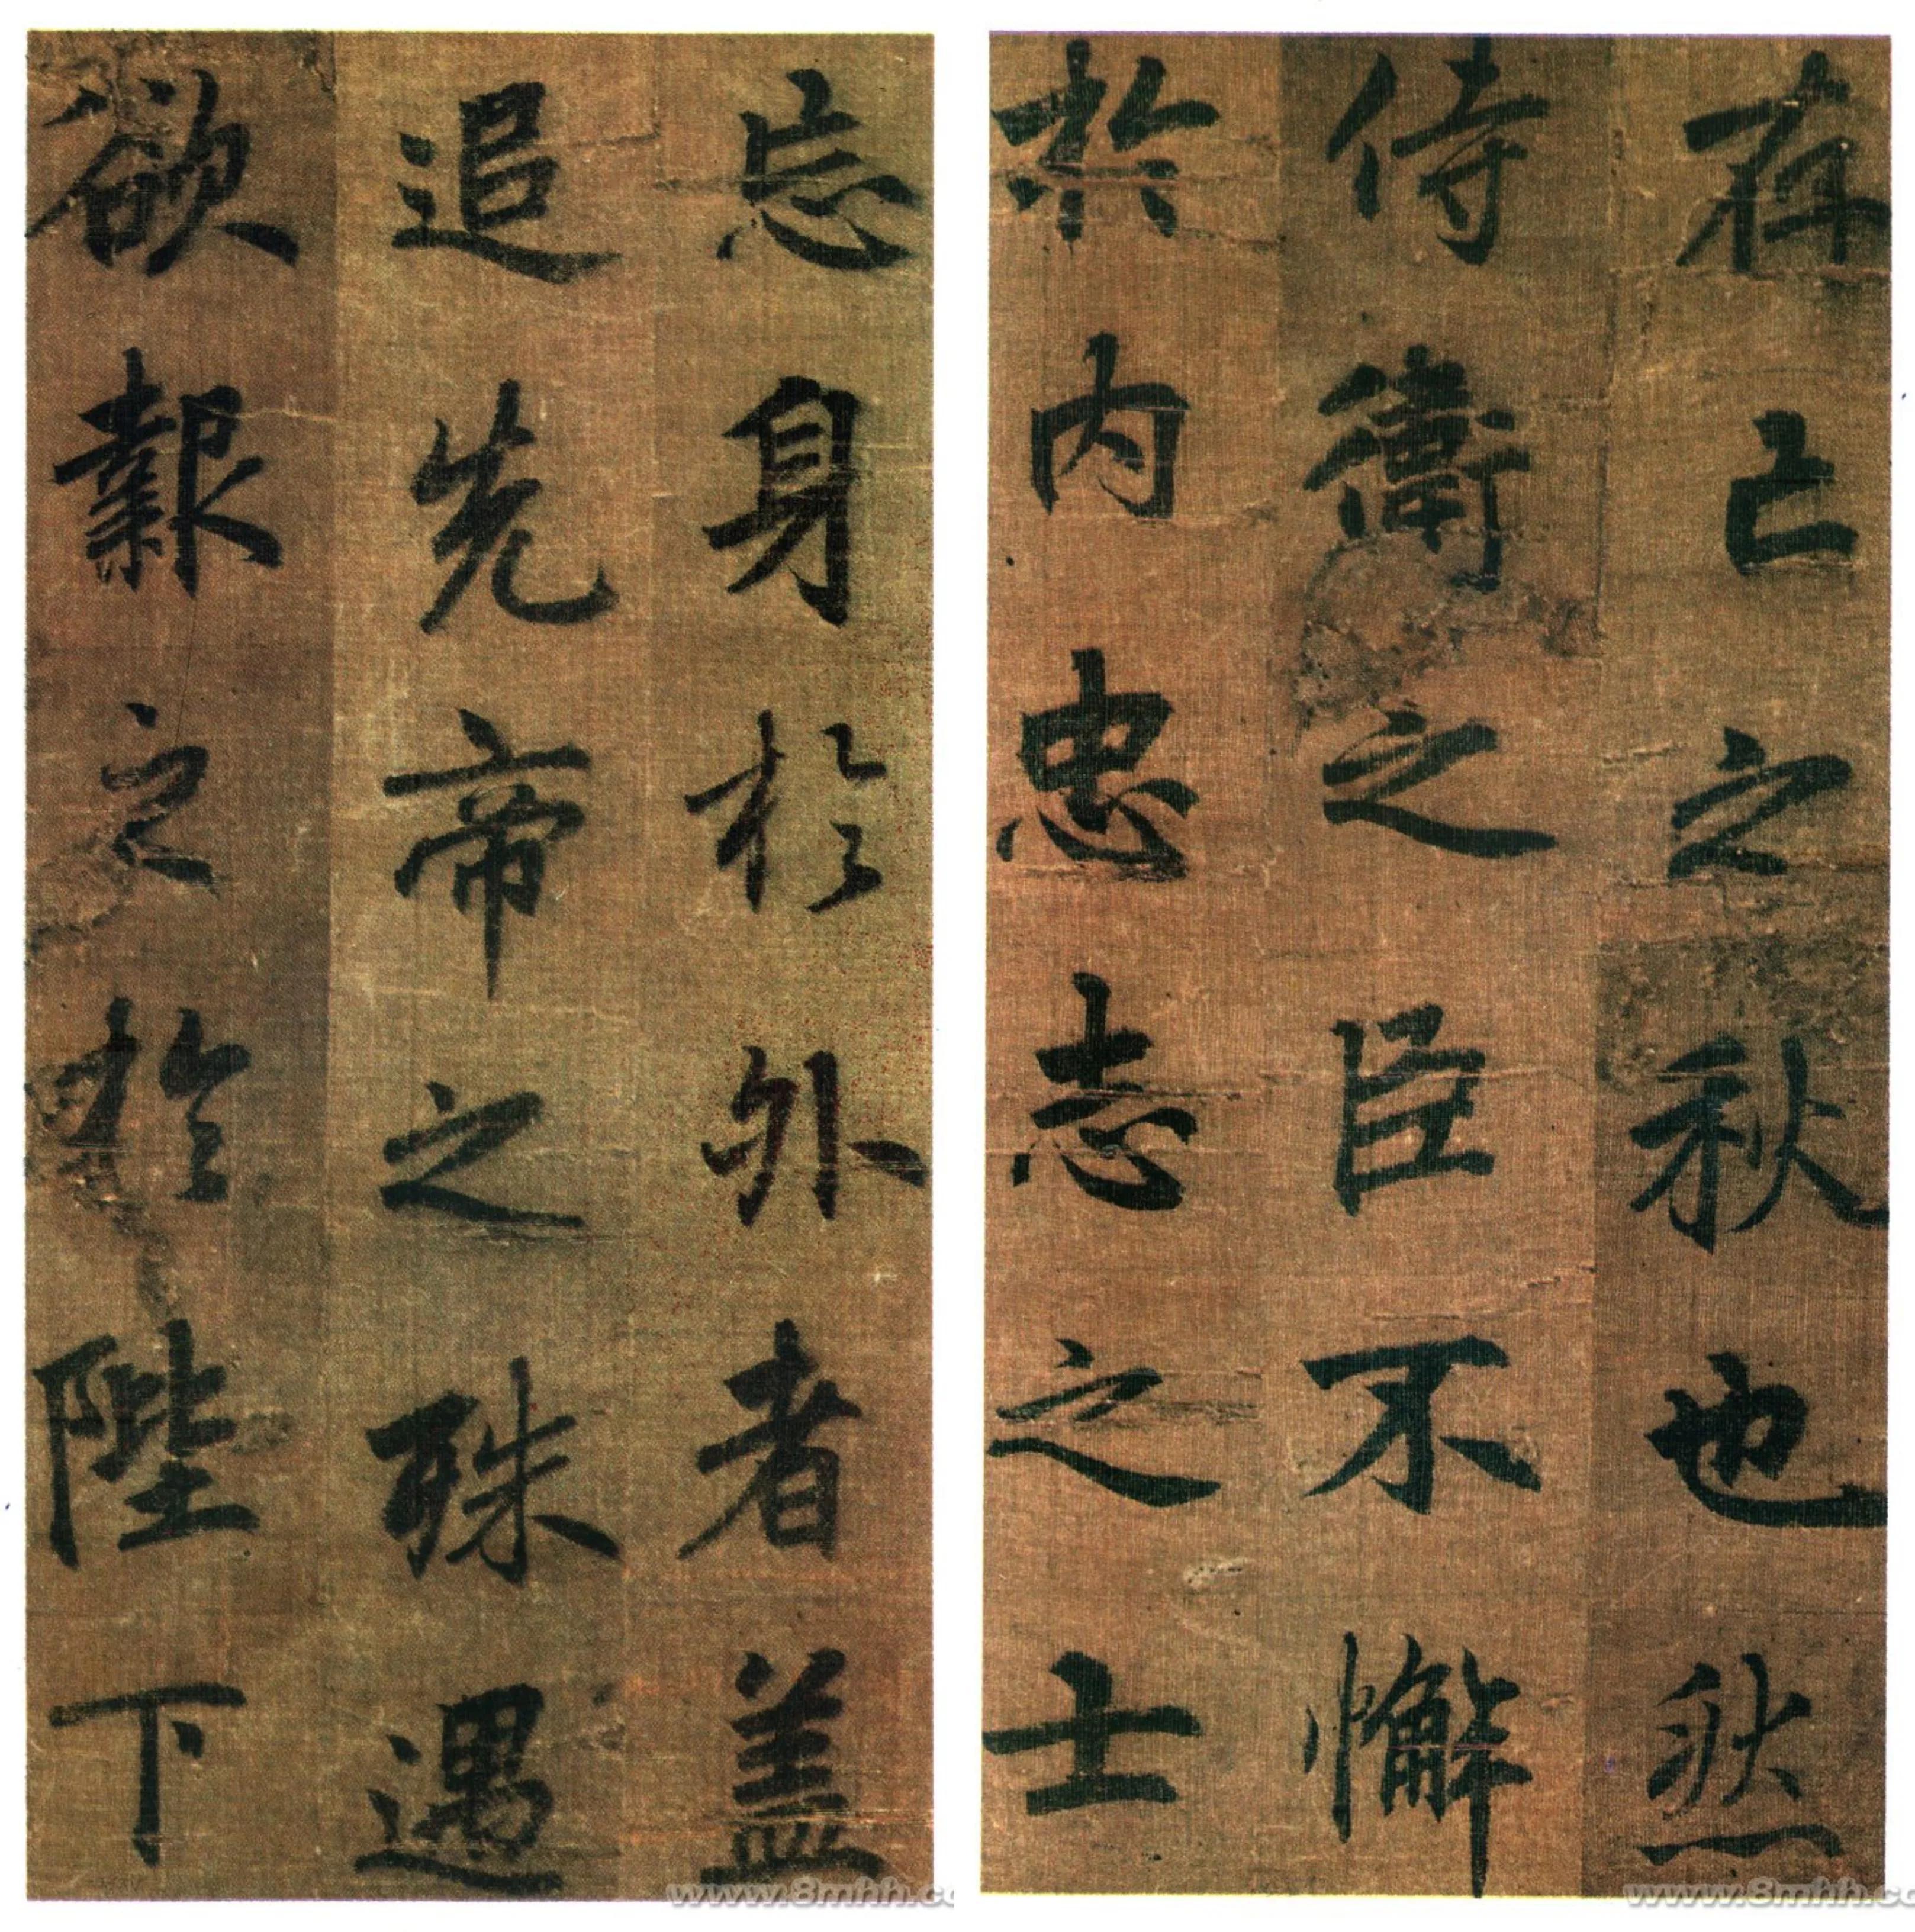 存亡之秋也然
侍衛之臣不懈
於内忠志之士
忘身於外者盖
追先帝之殊遇
欲報之於陛下
www.8mhh.co
www.8mhh.co